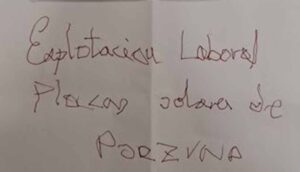 Explotacion Laboral
Placas solares de
PORZUNA